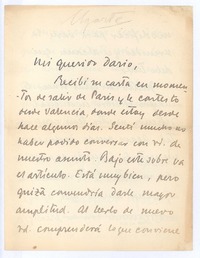 Ugarte
Mi querido Darío,
Recibí su carta en momen-
tos de salir de Paris y le contesto
desde Valencia, donde estoy desde
hace algunos días. Sentí mucho no
haber podido conversar con vd. de
nuestro asunto. Bajo este sobre va
el artículo. Está muy bien, pero
quizá convendría darle mayor
amplitud. Al leerlo de nuevo
vd. comprenderá lo que conviene